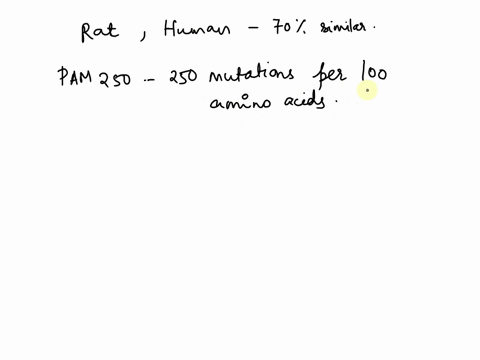 Rat, Human - 70% similar.
PAM 250 - 250 mutations per 100
amino acids.